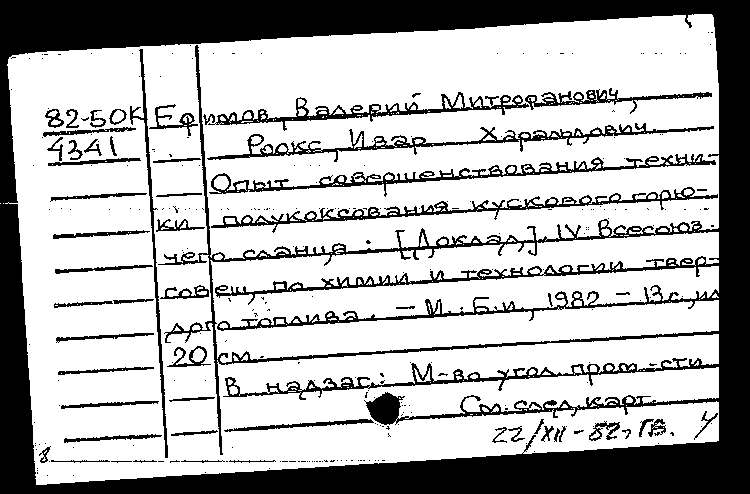 82-50К Ефимов, Валерий Митрофанович,
4341 Роокс, Ивар Харальдович.
Опыт совершенствования техни-
ки полукоксования кускового горю-
чего сланца : [Доклад] IV Всесоюз.
совещ. по химии и технологии твер-
дого топлива. — М. : Б.и., 1982 — 13 с., ил
20 см.
В надзаг.: М-во угол. пром-сти
См. след. карт.
22/XII-82, ГВ. 4
8